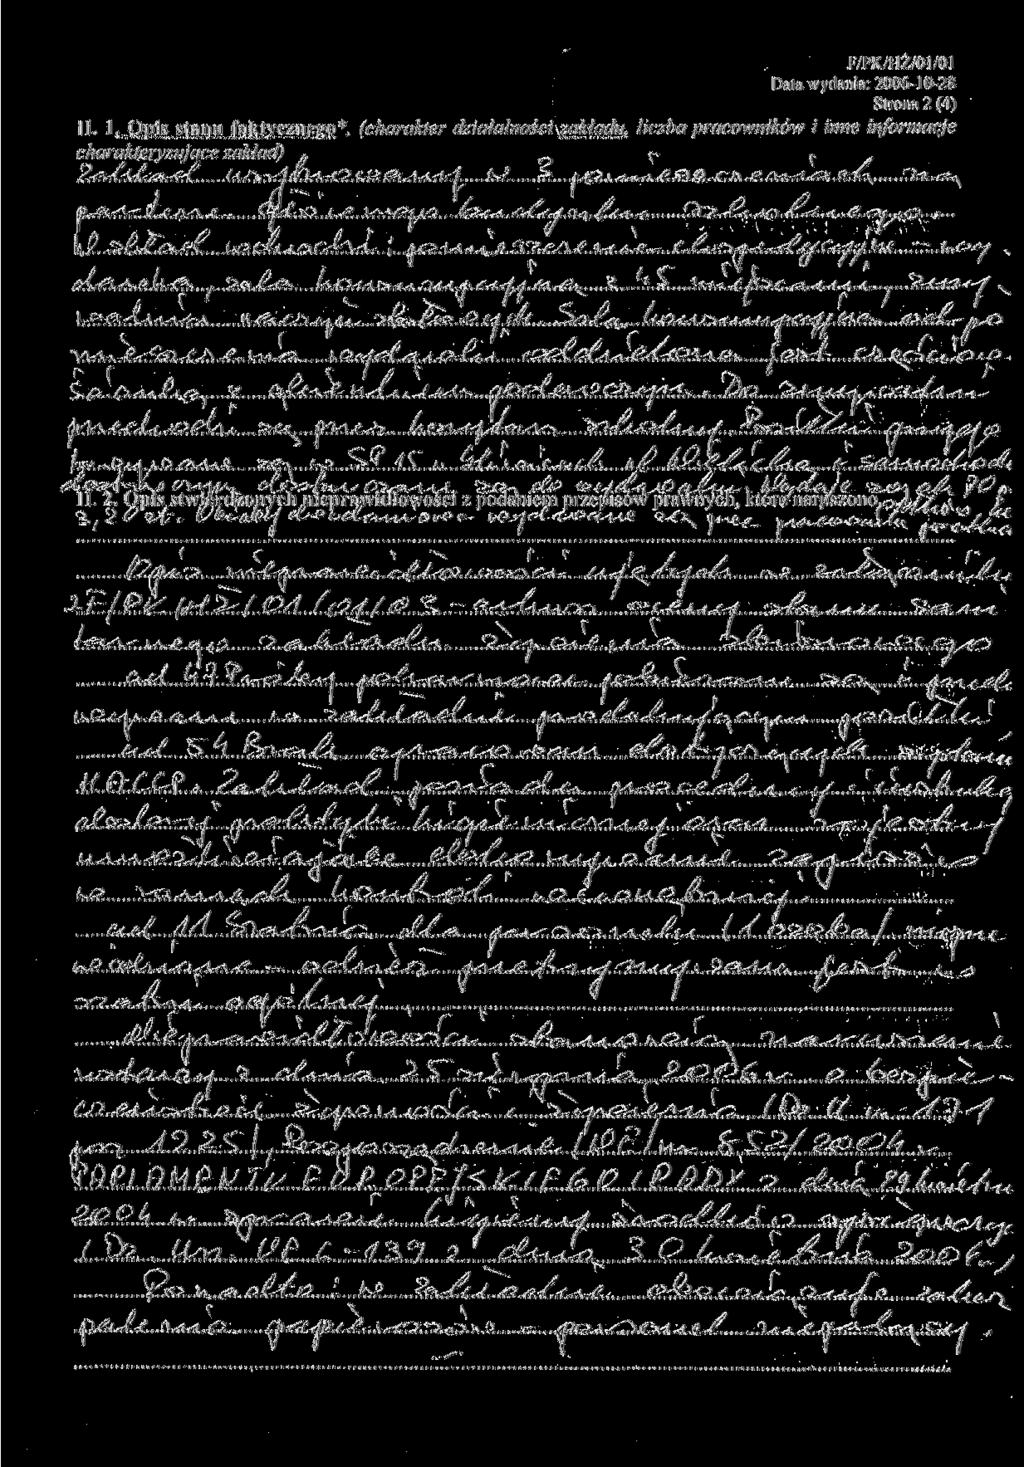 F/PK/HŻ/01/01
Data wydania: 2006-10-28
Strona 2 (4)
II. 1. Opis stanu faktycznego*. (charakter działalności zakładu, liczba pracowników i inne informacje
charakteryzujące zakład)
Zakład usytuowany w 3 pomieszczeniach na
parterze głównego budynku szkolnego.
W skład wchodzi: pomieszczenie ekspedycyjne - wy
dawka, sala konsumpcyjna z 45 miejscami, zmy
walnia naczyń stołowych. Sala konsumpcyjna od po
mieszczenia wydawalni oddzielona jest częściowo
ścianką z okienkiem podawczym. Do zmywalni
przechodzi się przez korytarz szkolny. Posiłki
są w SP 15 i samochodem
do
II. 2. Opis stwierdzonych nieprawidłowości z podaniem przepisów prawnych, które naruszono.
3,20 zł. Obiady wydawane są przez pracownika
Opis nieprawidłowości ujętych w załączniku
ZF/PK/HŻ/01/01/03 - arkusz oceny stanu sani
tarnego zakładu żywienia zbiorowego
ad 47 Próby pokarmowe pobierane są i przecho
wywane w zakładzie produkującym posiłki
ad 54 Brak opracowań dotyczących systemu
HACCP. Zakład posiada procedury i instrukcje
dobrej praktyki higienicznej oraz
umożliwiające zagrożeń
w ramach kontroli wewnętrznej.
ad 11 Szatnia dla pracownika (1 osoba)
odzież przetrzymywana jest w
szatni ogólnej
Nieprawidłowości stanowią naruszenie
ustawy z dnia 25 sierpnia 2006 r. o bezpie-
czeństwie żywności i żywienia (Dz. U. nr 171
poz. 1225), Rozporządzenie (WE) nr 852/2004
PARLAMENTU EUROPEJSKIEGO I RADY z dnia 29 kwietnia
2004 w sprawie higieny środków spożywczych
(Dz. Urz. UE L-139 z dnia 30 kwietnia 2004)
Ponadto: w zakładzie obowiązuje zakaz
palenia papierosów - personel niepalący.